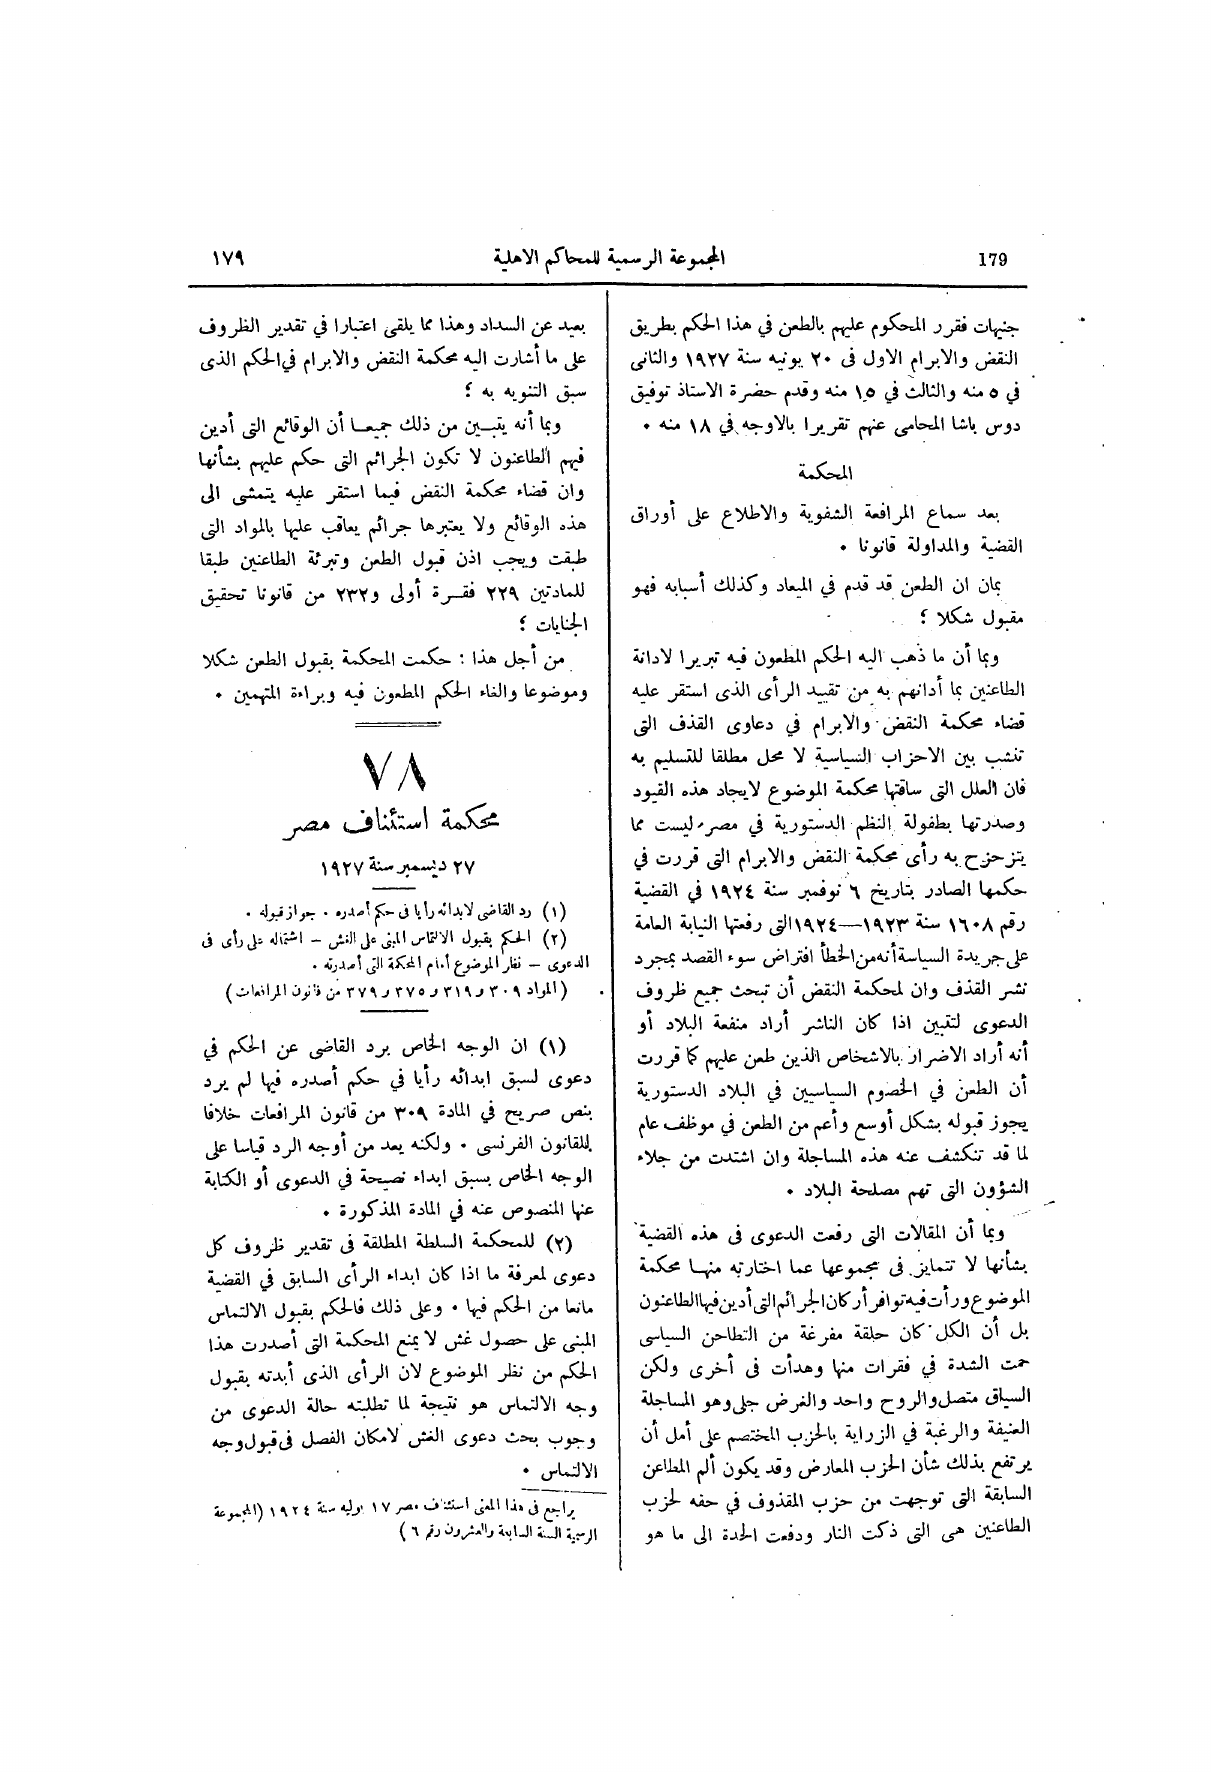 179
المجموعة الرسمية للمحاكم الاهلية
١٧٩
جنيهات فقرر المحكوم عليهم بالطعن في هذا الحكم بطريق
النقض والابرام الاول فى ٢٠ يونيه سنة ١٩٢٧ والثانى
في ٥ منه والثالث في ١٥ منه وقدم حضرة الاستاذ توفيق
دوس باشا المحامى عنهم تقريرا بالاوجه في ١٨ منه ٠
المحكمة
بعد سماع المرافعة الشفوية والاطلاع على أوراق
القضية والمداولة قانونا ٠
بمان ان الطعن قد قدم في الميعاد وكذلك أسبابه فهو
مقبول شكلا ؛
وبما أن ما ذهب اليه الحكم المطعون فيه تبريرا لادانة
الطاعنين بما أدانهم به من تقييد الرأى الذى استقر عليه
قضاء محكمة النقض والابرام في دعاوى القذف التى
تنشب بين الاحزاب السياسية لا محل مطلقا للتسليم به
فان العلل التى ساقتها محكمة الموضوع لايجاد هذه القيود
وصدرتها بطفولة النظم الدستورية في مصر ليست مما
يتزحزح به رأى محكمة النقض والابرام التى قررت في
حكمها الصادر بتاريخ ٦ نوفمبر سنة ١٩٢٤ في القضية
رقم ١٦٠٨ سنة ١٩٢٣—١٩٢٤التى رفعتها النيابة العامة
على جريدة السياسة أنه من الخطأ افتراض سوء القصد بمجرد
نشر القذف وان لمحكمة النقض أن تبحث جميع ظروف
الدعوى لتقبين اذا كان الناشر أراد منفعة البلاد أو
أنه أراد الاضرار بالاشخاص الذين طعن عليهم كما قررت
أن الطعن في الخصوم السياسيين في البلاد الدستورية
يجوز قبوله بشكل أوسع وأعم من الطعن في موظف عام
لما قد تنكشف عنه هذه المساجلة وان اشتدت من جلاء
الشؤون التى تهم مصلحة البلاد ٠
وبما أن المقالات التى رفعت الدعوى فى هذه القضية
بشأنها لا تتمايز فى مجموعها عما اختارته منها محكمة
الموضوع ورأت فيه توافر أركان الجرائم التى أدين فيها الطاعنون
بل أن الكل كان حلقة مفرغة من التطاحن السياسى
حمت الشدة في فقرات منها وهدأت فى أخرى ولكن
السياق متصل والروح واحد والغرض جلى وهو المساجلة
العنيفة والرغبة في الزراية بالحزب المختصم على أمل أن
يرتفع بذلك شأن الحزب المعارض وقد يكون ألم المطاعن
السابقة التى توجهت من حزب المقذوف في حقه لحزب
الطاعنين هى التى ذكت النار ودفعت الحدة الى ما هو
بعيد عن السداد وهذا مما يلقى اعتبارا في تقدير الظروف
على ما أشارت اليه محكمة النقض والابرام في الحكم الذى
سبق التنويه به ؛
وبما أنه يتبــين من ذلك جميعــا أن الوقائع التى أدين
فيهم الطاعنون لا تكون الجرائم التى حكم عليهم بشأنها
وان قضاء محكمة النقض فيما استقر عليه يتمشى الى
هذه الوقائع ولا يعتبرها جرائم يعاقب عليها بالمواد التى
طبقت ويجب اذن قبول الطعن وتبرئة الطاعنين طبقا
للمادتين ٢٢٩ فقــرة أولى و٢٣٢ من قانونا تحقيق
الجنايات ؛
من أجل هذا : حكمت المحكمة بقبول الطعن شكلا
وموضوعا والغاء الحكم المطعون فيه وبراءة المتهمين ٠
٧٨
محكمة استئناف مصر
٢٧ ديسمبر سنة ١٩٢٧
(١) رد القاضى لابدائه رأيا فى حكم أصدره ٠ جواز قبوله ٠
(٢) الحكم بقبول الالتماس المبنى على الغش – اشتماله على رأى فى
الدعوى – نظر الموضوع أمام المحكمة التى أصدرته ٠
(المواد ٣٠٩ و٣١٩ و٣٧٥ و٣٧٩ من قانون المرافعات)
(١) ان الوجه الخاص برد القاضى عن الحكم في
دعوى لسبق ابدائه رأيا في حكم أصدره فيها لم يرد
بنص صريح في المادة ٣٠٩ من قانون المرافعات خلافا
للقانون الفرنسى ٠ ولكنه يعد من أوجه الرد قياسا على
الوجه الخاص بسبق ابداء نصيحة في الدعوى أو الكتابة
عنها المنصوص عنه في المادة المذكورة ٠
(٢) للمحكمة السلطة المطلقة فى تقدير ظروف كل
دعوى لمعرفة ما اذا كان ابداء الرأى السابق في القضية
مانعا من الحكم فيها ٠ وعلى ذلك فالحكم بقبول الالتماس
المبنى على حصول غش لا يمنع المحكمة التى أصدرت هذا
الحكم من نظر الموضوع لان الرأى الذى أبدته بقبول
وجه الالتماس هو نتيجة لما تطلبته حالة الدعوى من
وجوب بحث دعوى الغش لامكان الفصل فى قبول وجه
الالتماس ٠
يراجع فى هذا المعنى استئناف مصر ١٧ يوليه سنة ١٩٢٤ (المجموعة
الرسمية السنة السابعة والعشرون رقم ٦)